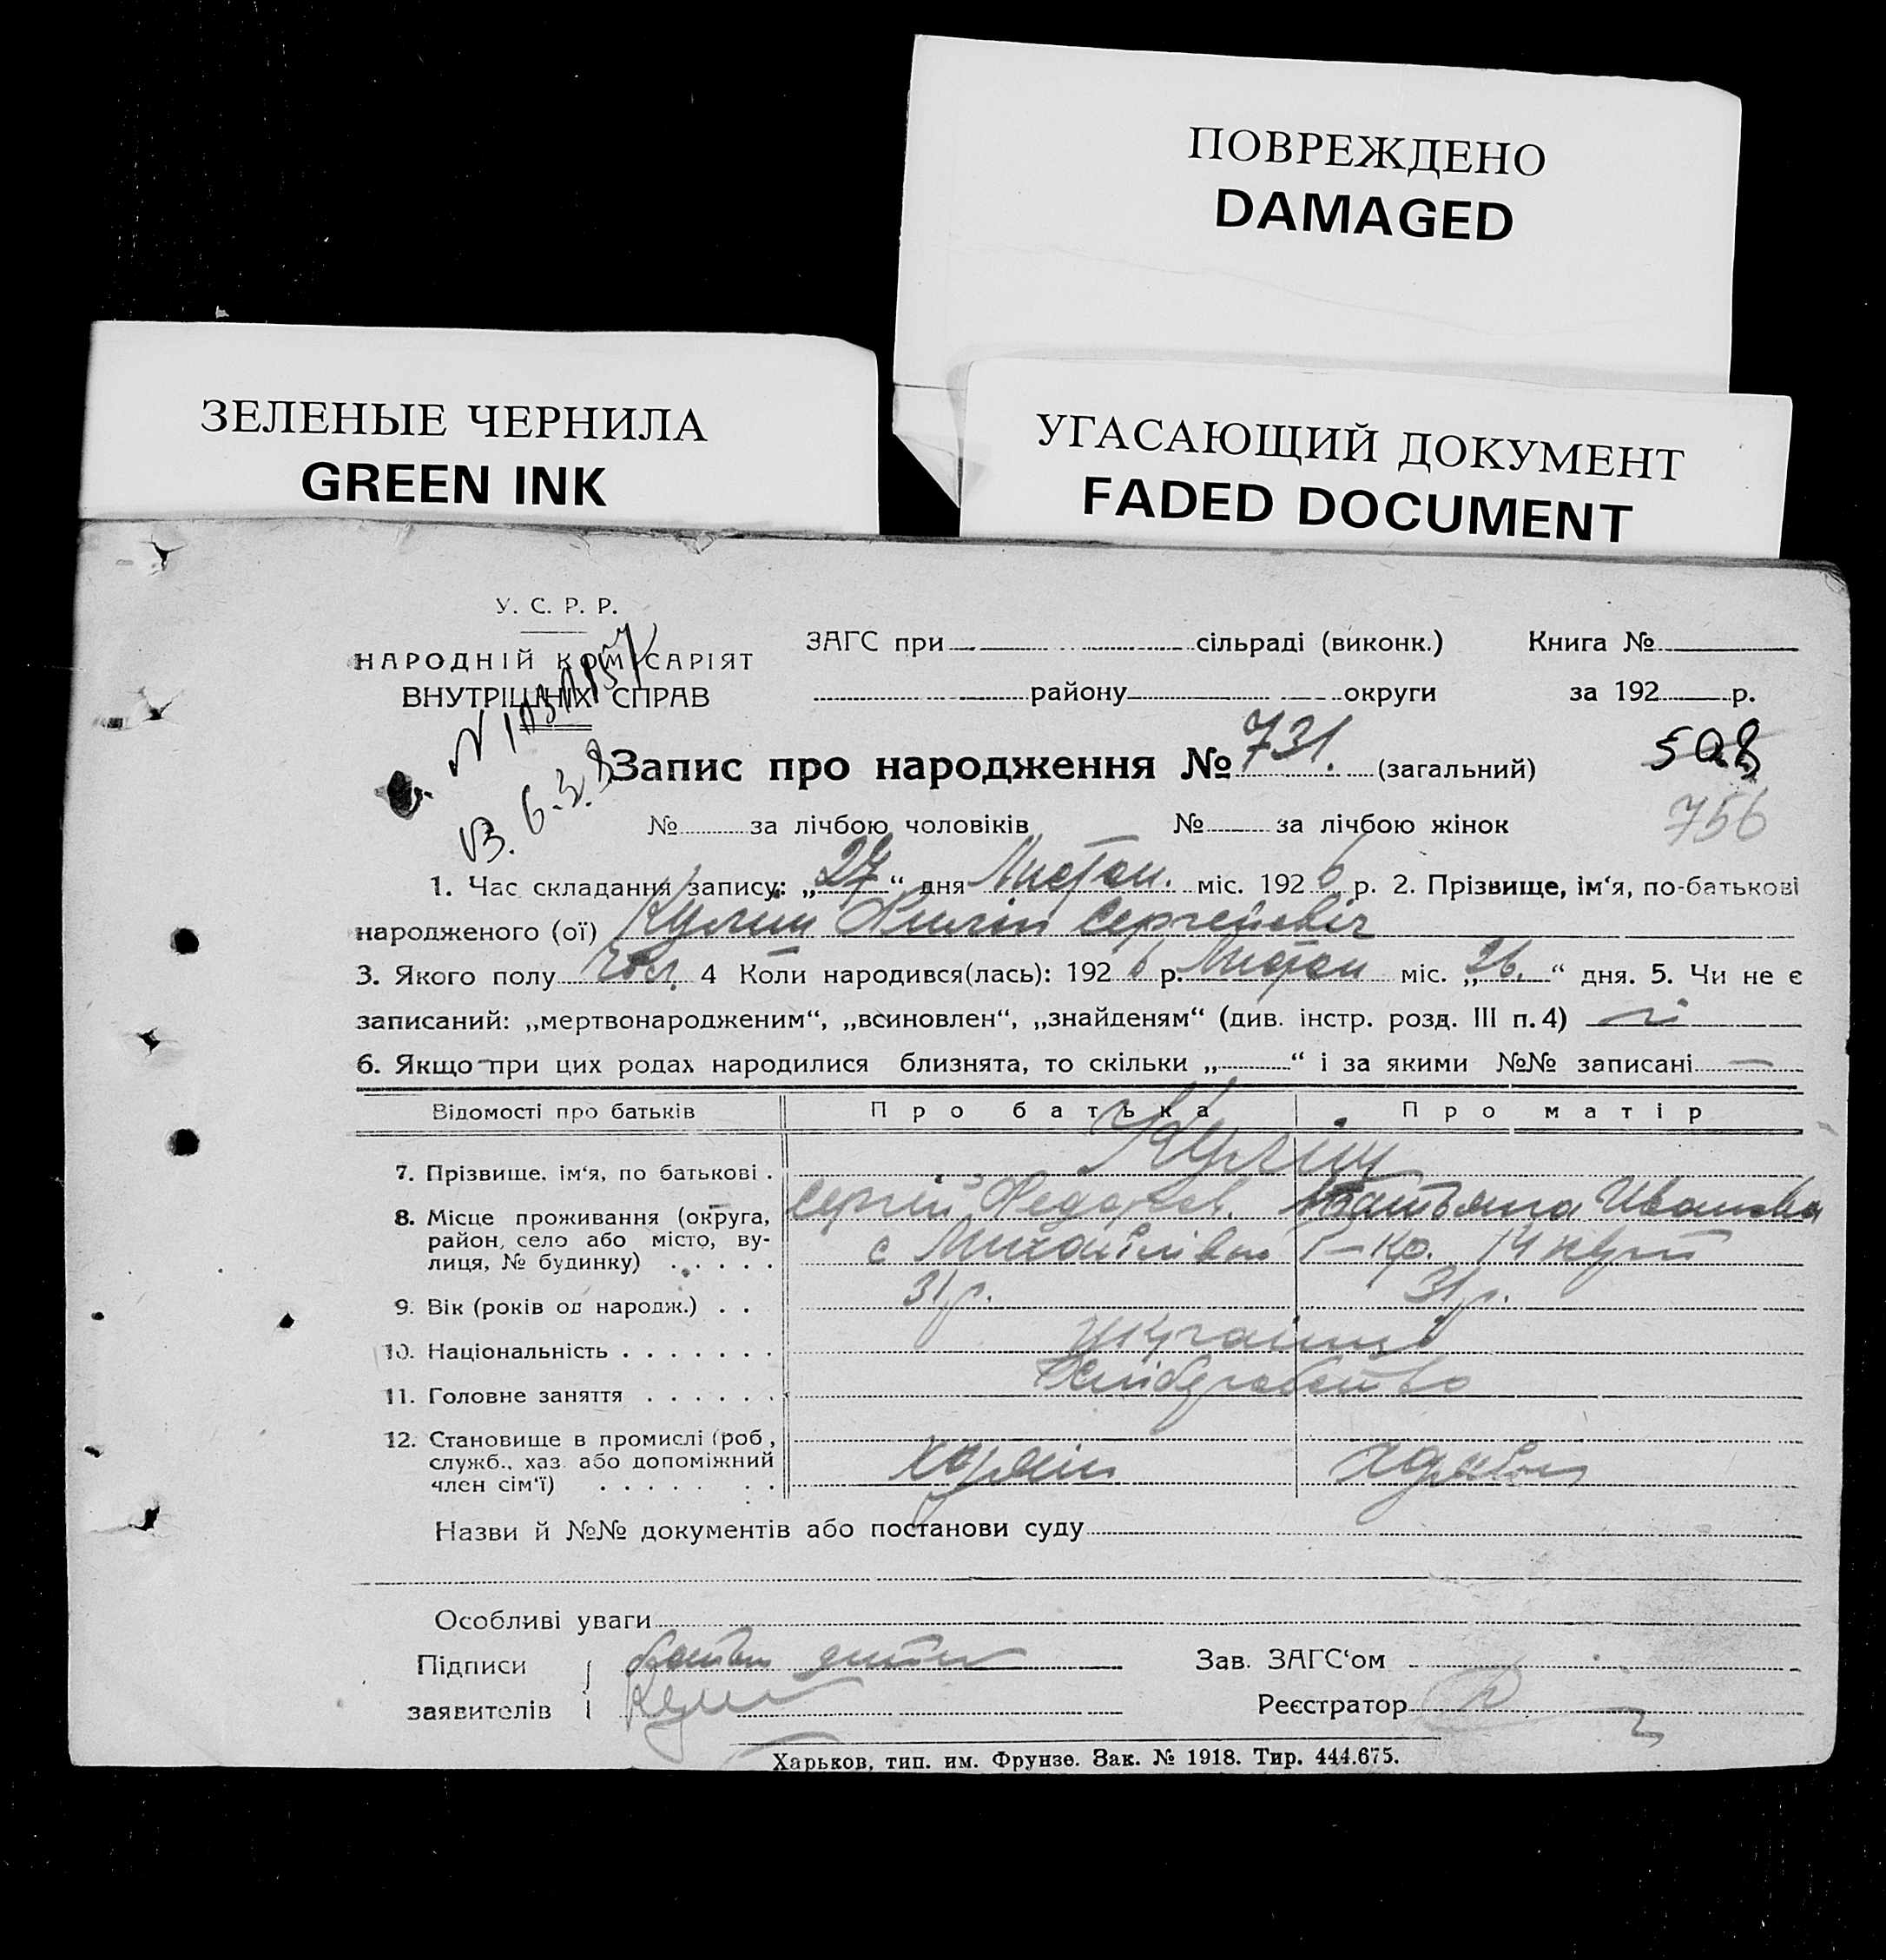 ПОВРЕЖДЕНО
DAMAGED
ЗЕЛЕНЫЕ ЧЕРНИЛА
GREEN INK
УГАСАЮЩИЙ ДОКУМЕНТ
FADED DOCUMENT
У. С. Р. Р.
НАРОДНІЙ КОМІСАРІЯТ
ВНУТРІШНІХ СПРАВ
ЗАГС при сільраді (виконк.) Книга №
району округи за 192 р.
Запис про народження № 731. (загальний) 508
№ за лічбою чоловіків № за лічбою жінок 756
1. Час складання запису: „27“ дня Листоп. міс. 1926 р. 2. Прізвище, ім‘я, по-батькові
народженого (ої) Кулиш Филіп Сергейовіч
3. Якого полу чол. 4 Коли народився(лась): 1926 р. Листоп міс. „26.“ дня. 5. Чи не є
записаний: „мертвонародженим“, „всиновлен“, „знайденям“ (див. інстр. розд. III п. 4) ні
6. Якщо при цих родах народилися близнята, то скільки „—“ і за якими №№ записані —
Відомості про батьків Про батька Про матір
7. Прізвище, ім‘я, по батькові . Куліш
Сергій Федоров. Татьяна Ивановна
8. Місце проживання (округа,
район, село або місто, ву-
лиця, № будинку) . . . . . с Михайлівка
9. Вік (років од народж.) . . 31 р. 31 р.
10. Національність . . . . . . . Українці
11. Головне заняття . . . . . . Хліборобство
12. Становище в промислі (роб.,
служб., хаз. або допоміжний
член сім‘ї) . . . . . . .
Назви й №№ документів або постанови суду
Особливі уваги
Підписи батьки Зав. ЗАГС‘ом
заявителів Кулиш Реєстратор
Харьков, тип. им. Фрунзе. Зак. № 1918. Тир. 444.675.